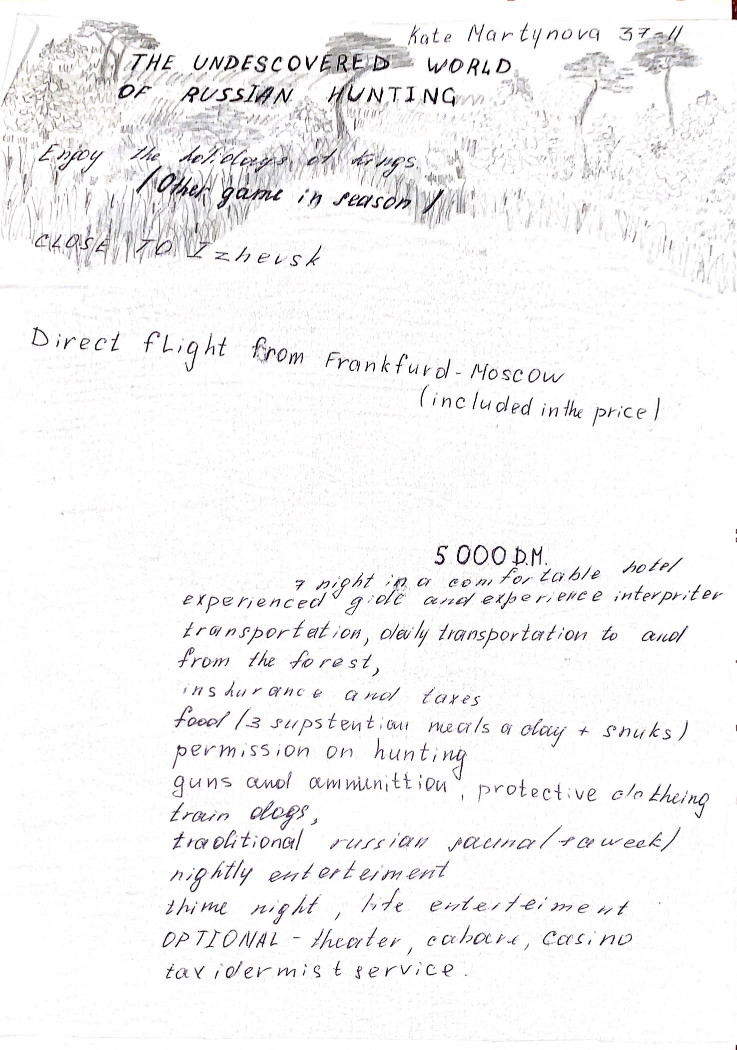 Kate Martynova 37-11
THE UNDESCOVERED WORLD
OF RUSSIAN HUNTING
Enjoy the holidays of kings.
(Other game in season)
CLOSE TO Izhevsk
Direct flight from Frankfurd-Moscow
(included in the price)
5000 D.M.
7 night in a comfortable hotel
experienced gide and experience interpriter
transportation, daily transportation to and
from the forest,
inshurance and taxes
food (3 supstention meals a day + snuks)
permission on hunting
guns and ammunittion, protective clotheing
train dogs,
traditional russian sauna ( a week)
nightly enterteiment
thime night, life enterteiment
OPTIONAL - theater, cabare, casino
taxidermist service.